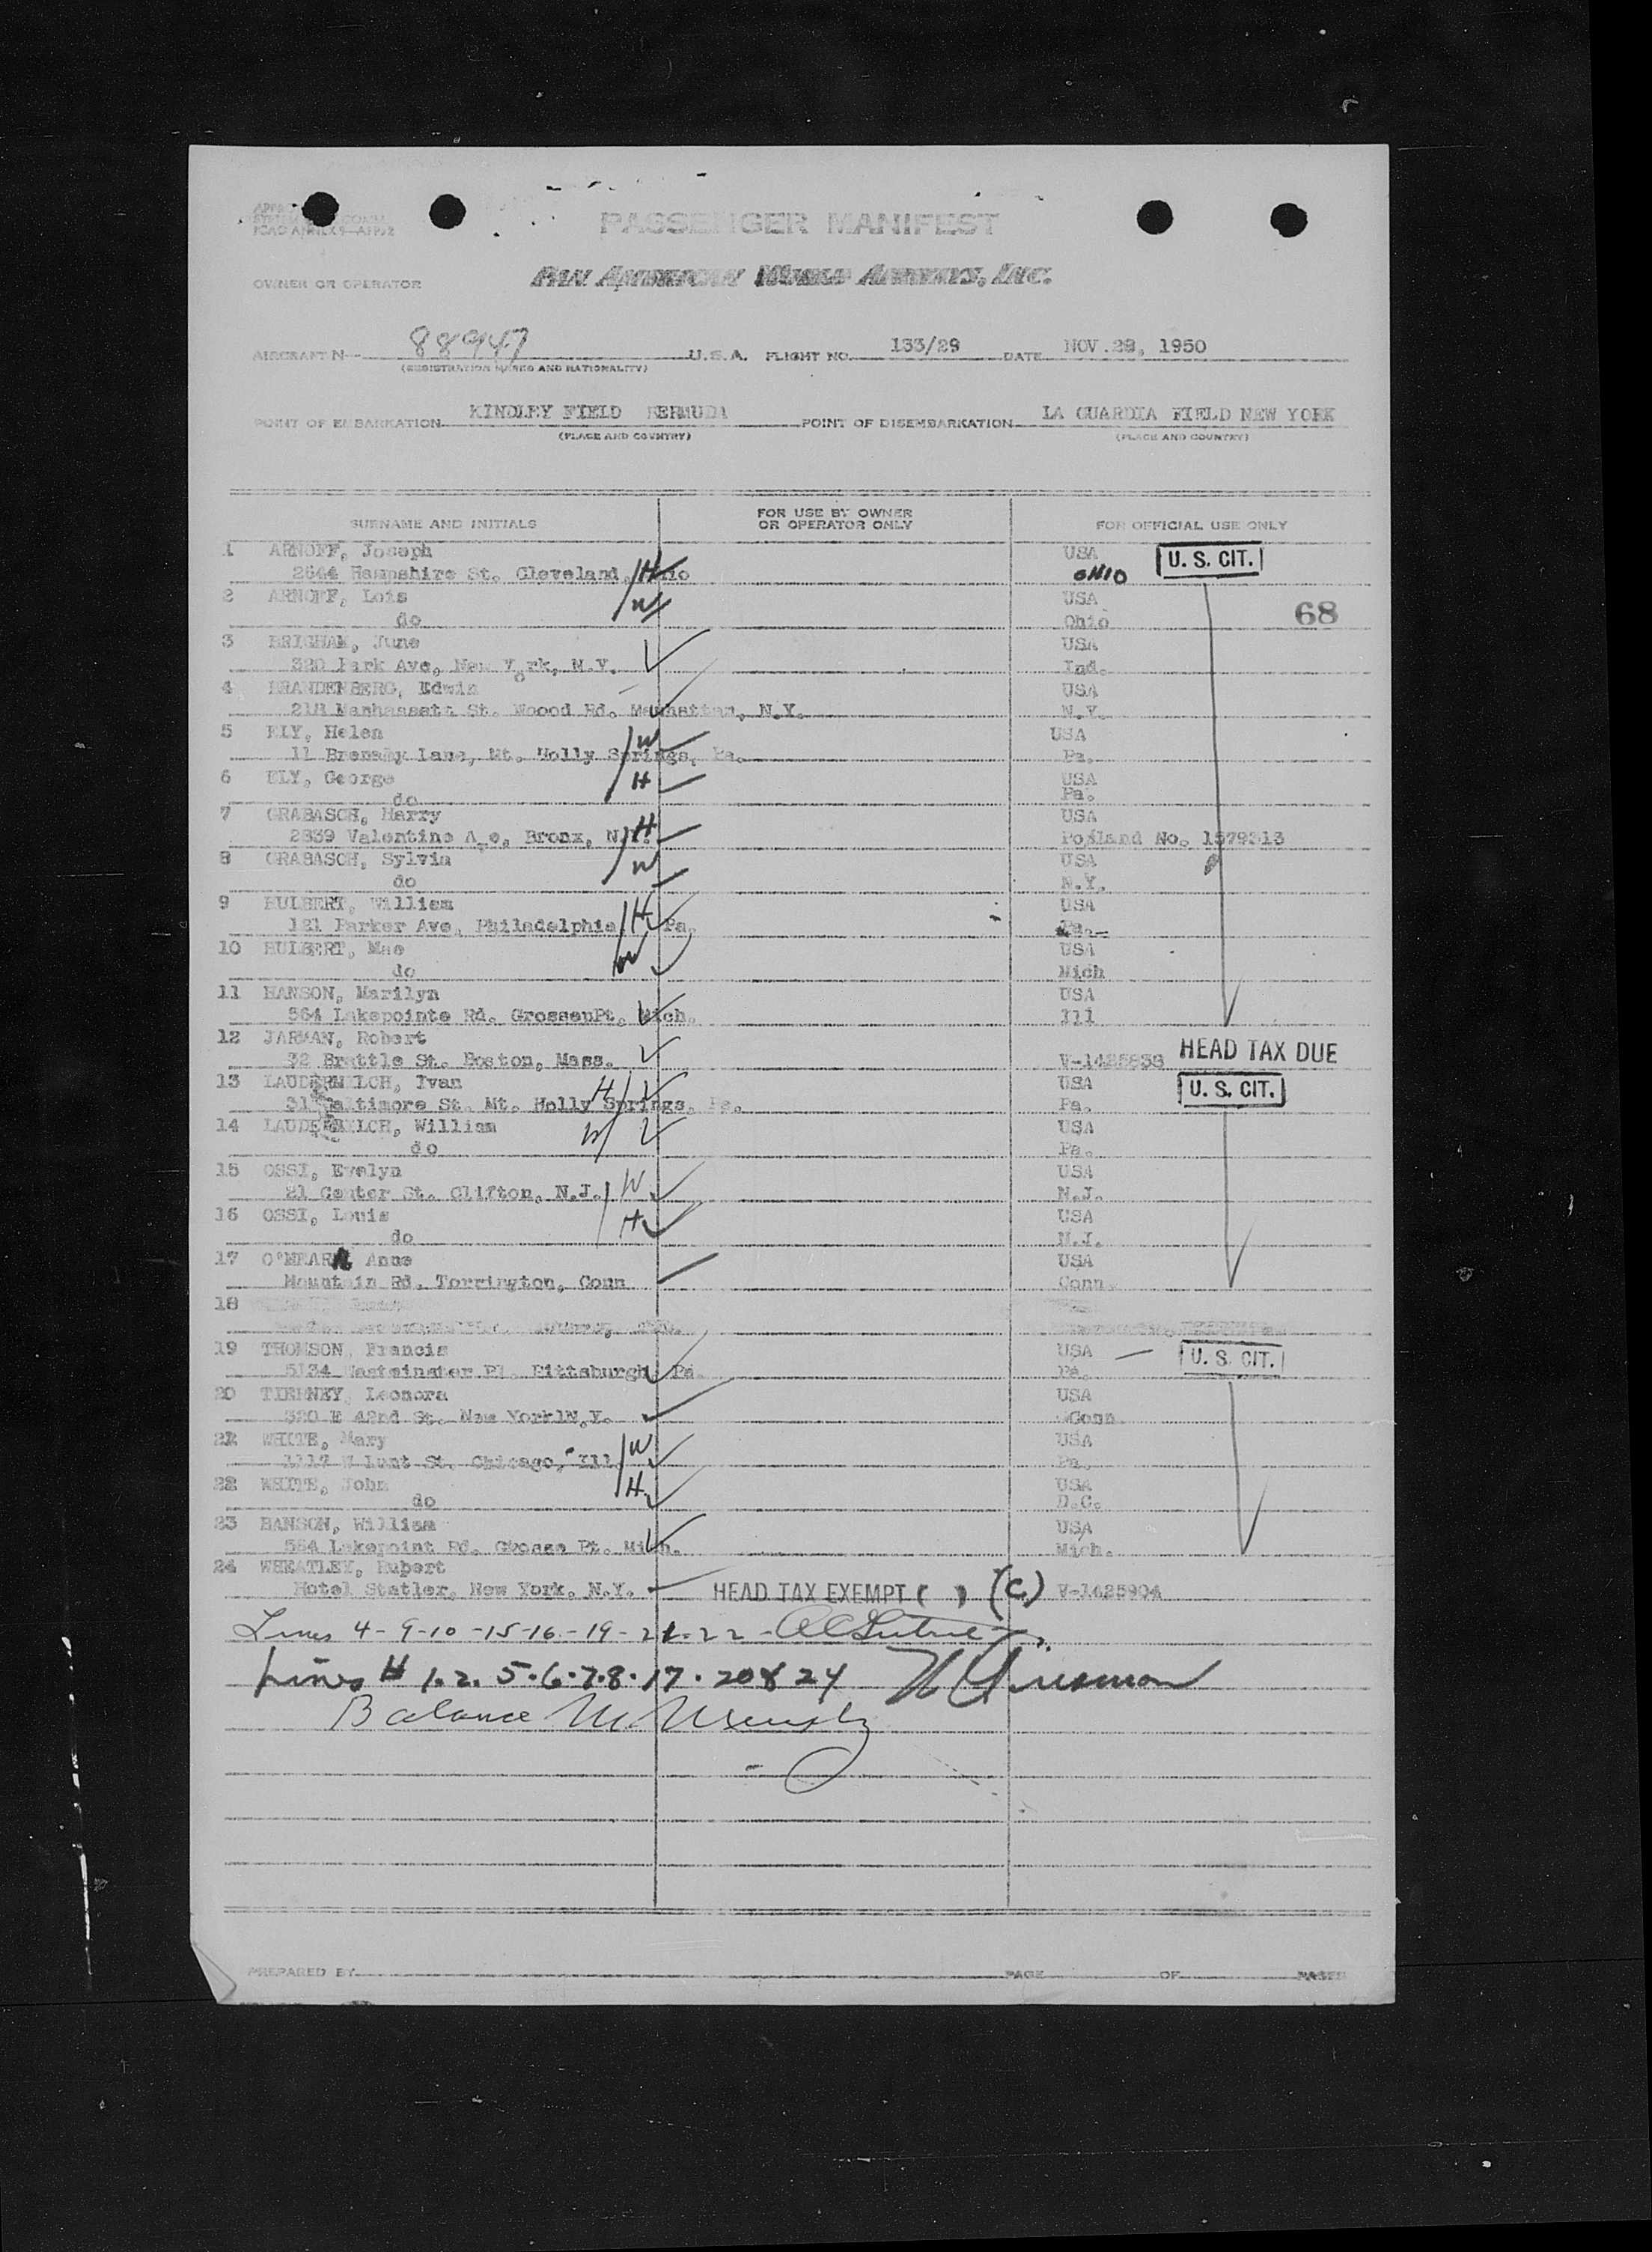 PASSENGER MANIFEST
OWNER OR OPERATOR PAN AMERICAN WORLD AIRWAYS, INC.
AIRCRAFT N- 88947 U.S.A. FLIGHT NO. 133/29 DATE NOV. 29, 1950
(REGISTRATION MARKS AND NATIONALITY)
POINT OF EMBARKATION KINDLEY FIELD BERMUDA POINT OF DISEMBARKATION LA GUARDIA FIELD NEW YORK
(PLACE AND COUNTRY) (PLACE AND COUNTRY)
SURNAME AND INITIALS FOR USE BY OWNER OR OPERATOR ONLY FOR OFFICIAL USE ONLY
1 ARNOFF, Joseph USA U. S. CIT.
2644 Hampshire St. Cleveland, Ohio H OHIO
2 ARNOFF, Lois W USA
do Ohio 68
3 BRIGHAM, June USA
320 Park Ave, New York, N.Y. Ind.
4 BRANDENBERG, Edwin USA
218 Manhassata St. Woood Rd. Manhattan, N.Y. N.Y.
5 ELY, Helen W USA
11 Lane, Mt. Holly Springs, Pa. Pa.
6 ELY, George H USA
do Pa.
7 GRABASCH, Harry H USA
2839 Valentine Ave, Bronx, N.Y. Poland No. 1579313
8 GRABASCH, Sylvia W USA
do N.Y.
9 HULBERT, William H USA
121 Parker Ave, Philadelphia, Pa. Pa.
10 HULBERT, Mae W USA
do Mich
11 HANSON, Marilyn USA
564 Lakepointe Rd. GrosseuPt, Mich. Ill
12 JARMAN, Robert
32 Brattle St. Boston, Mass. V-1425838 HEAD TAX DUE
13 LAUDERMILCH, Ivan H USA U. S. CIT.
31 Baltimore St. Mt. Holly Springs, Pa. Pa.
14 LAUDERMILCH, William W USA
do Pa.
15 OSSI, Evelyn W USA
21 Center St. Clifton, N.J. N.J.
16 OSSI, Louis H USA
do N.J.
17 O'MEARA Anne USA
Mountain Rd. Torrington, Conn Conn.
18
19 THOMSON, Francis USA U. S. CIT.
5134 Westminster Pl. Pittsburgh, Pa. Pa.
20 TIERNEY, Leonora USA
320 E 42nd St. New YorklN.Y. Conn.
21 WHITE, Mary W USA
1117 W lunt St. Chicago, Ill Pa.
22 WHITE, John H USA
do D.C.
23 HANSON, William USA
564 Lakepoint Rd. Grosse Pt. Mich. Mich.
24 WHEATLEY, Rupert
Hotel Statler, New York, N.Y. HEAD TAX EXEMPT ( ) (C) V-1425904
Lines 4-9-10-15-16-19-21-22-
Lines # 1.2.5.6.7.8.17.20 & 24
Balance
PREPARED BY PAGE OF PAGES